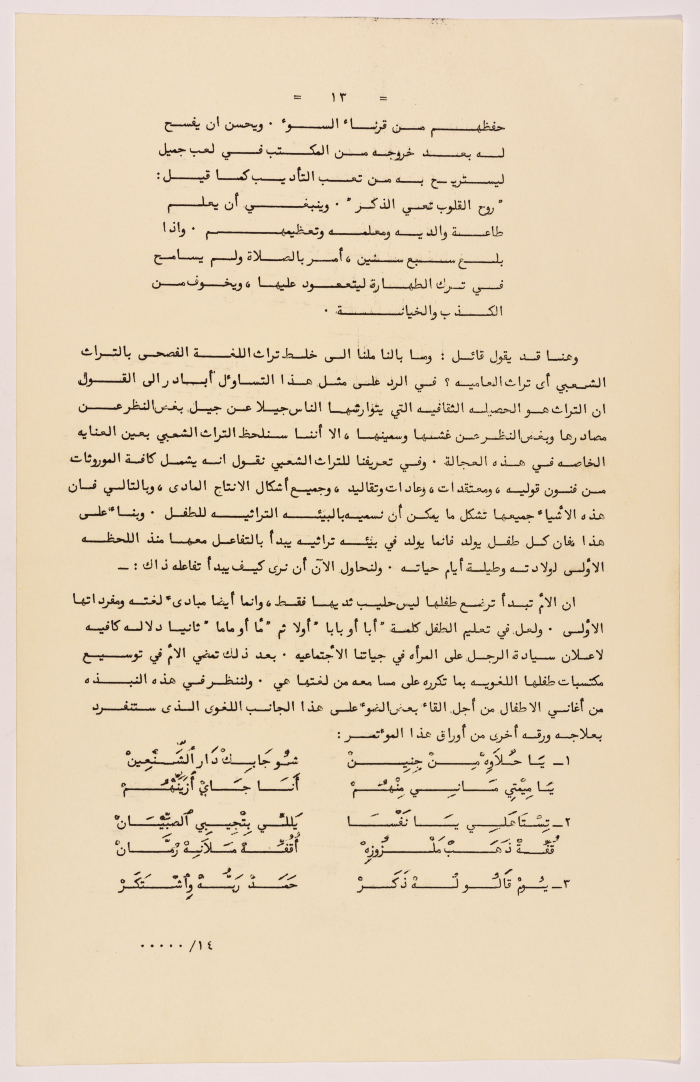 = ١٣ =
حفظهم من قرناء السوء . ويحسن ان يفسح
له بعد خروجه من المكتب في لعب جميل
ليستريح به من تعب التأديب كما قيل :
" روح القلوب تعي الذكر " . وينبغي أن يعلم
طاعة والديه ومعلمه وتعظيمهم . واذا
بلغ سبع سنين ، أمر بالصلاة ولم يسامح
في ترك الطهارة ليتعود عليها ، ويخوف من
الكذب والخيانة .
وهنا قد يقول قائل : وما بالنا ملنا الى خلط تراث اللغة الفصحى بالتراث
الشعبي أى تراث العاميه ؟ في الرد على مثل هذا التساؤل أبادر الى القول
ان التراث هو الحصيله الثقافيه التي يتوارثها الناس جيلا عن جيل بغض النظر عن
مصادرها وبغض النظر عن غشها وسمينها ، الا أننا سنلحظ التراث الشعبي بعين العنايه
الخاصه في هذه العجالة . وفي تعريفنا للتراث الشعبي نقول انه يشمل كافة الموروثات
من فنون قوليه ، ومعتقدات ، وعادات وتقاليد ، وجميع أشكال الانتاج المادى ، وبالتالي فان
هذه الأشياء جميعها تشكل ما يمكن أن نسميه بالبيئه التراثيه للطفل . وبناء على
هذا فان كل طفل يولد فانما يولد في بيئه تراثيه يبدأ بالتفاعل معها منذ اللحظه
الأولى لولادته وطيلة أيام حياته . ولنحاول الآن أن نرى كيف يبدأ تفاعله ذاك : ــ
ان الأم تبدأ ترضع طفلها ليس حليب ثديها فقط ، وانما أيضا مبادىء لغته ومفرداتها
الأولى . ولعل في تعليم الطفل كلمة " أبا أو بابا " أولا ثم " مّا أو ماما " ثانيا دلاله كافيه
لاعلان سيادة الرجل على المرأه في حياتنا الأجتماعيه . بعد ذلك تمضي الأم في توسيع
مكتسبات طفلها اللغويه بما تكرره على مسامعه من لغتها هي . ولننظر في هذه النبذه
من أغاني الاطفال من أجل القاء بعض الضوء على هذا الجانب اللغوى الذى ستنفرد
بعلاجه ورقه أخرى من أوراق هذا المؤتمر :
١ــ يَا حْلَاوِهْ مِنْ جِنِينْ شُو جَابِكْ دَارِ الشَّنْعِينْ
يَا مِيْمْتِي مَانِي مِنْهُمْ أَنَا جَايْ أَزَيِّنْهُمْ
٢ــ تِسْتَاهَلِي يَا نَفْسَا يَللِّي بِتْجِيبِي الصِّبْيَانْ
قُفِّةْ ذَهَبْ مَلْزُوزِهْ أُقُفِّةْ مَلَانِهْ رُمَّانْ
٣ــ يُومْ قَالُو لُهْ ذَكَرْ حَمَدْ رَبُّهْ وِاشْتَكَرْ
١٤/ . . . . .